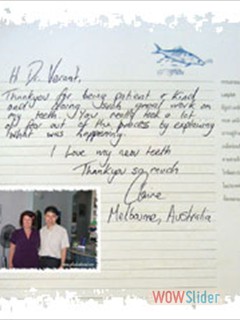 Hi Dr. Vorant,
Thankyou for being patient & kind
and doing such great work on
my teeth. You really took a lot
of fear out of the process by explaining
what was happening.
I love my new teeth
Thankyou so much
Claire
Melbourne, Australia
WOWSlider